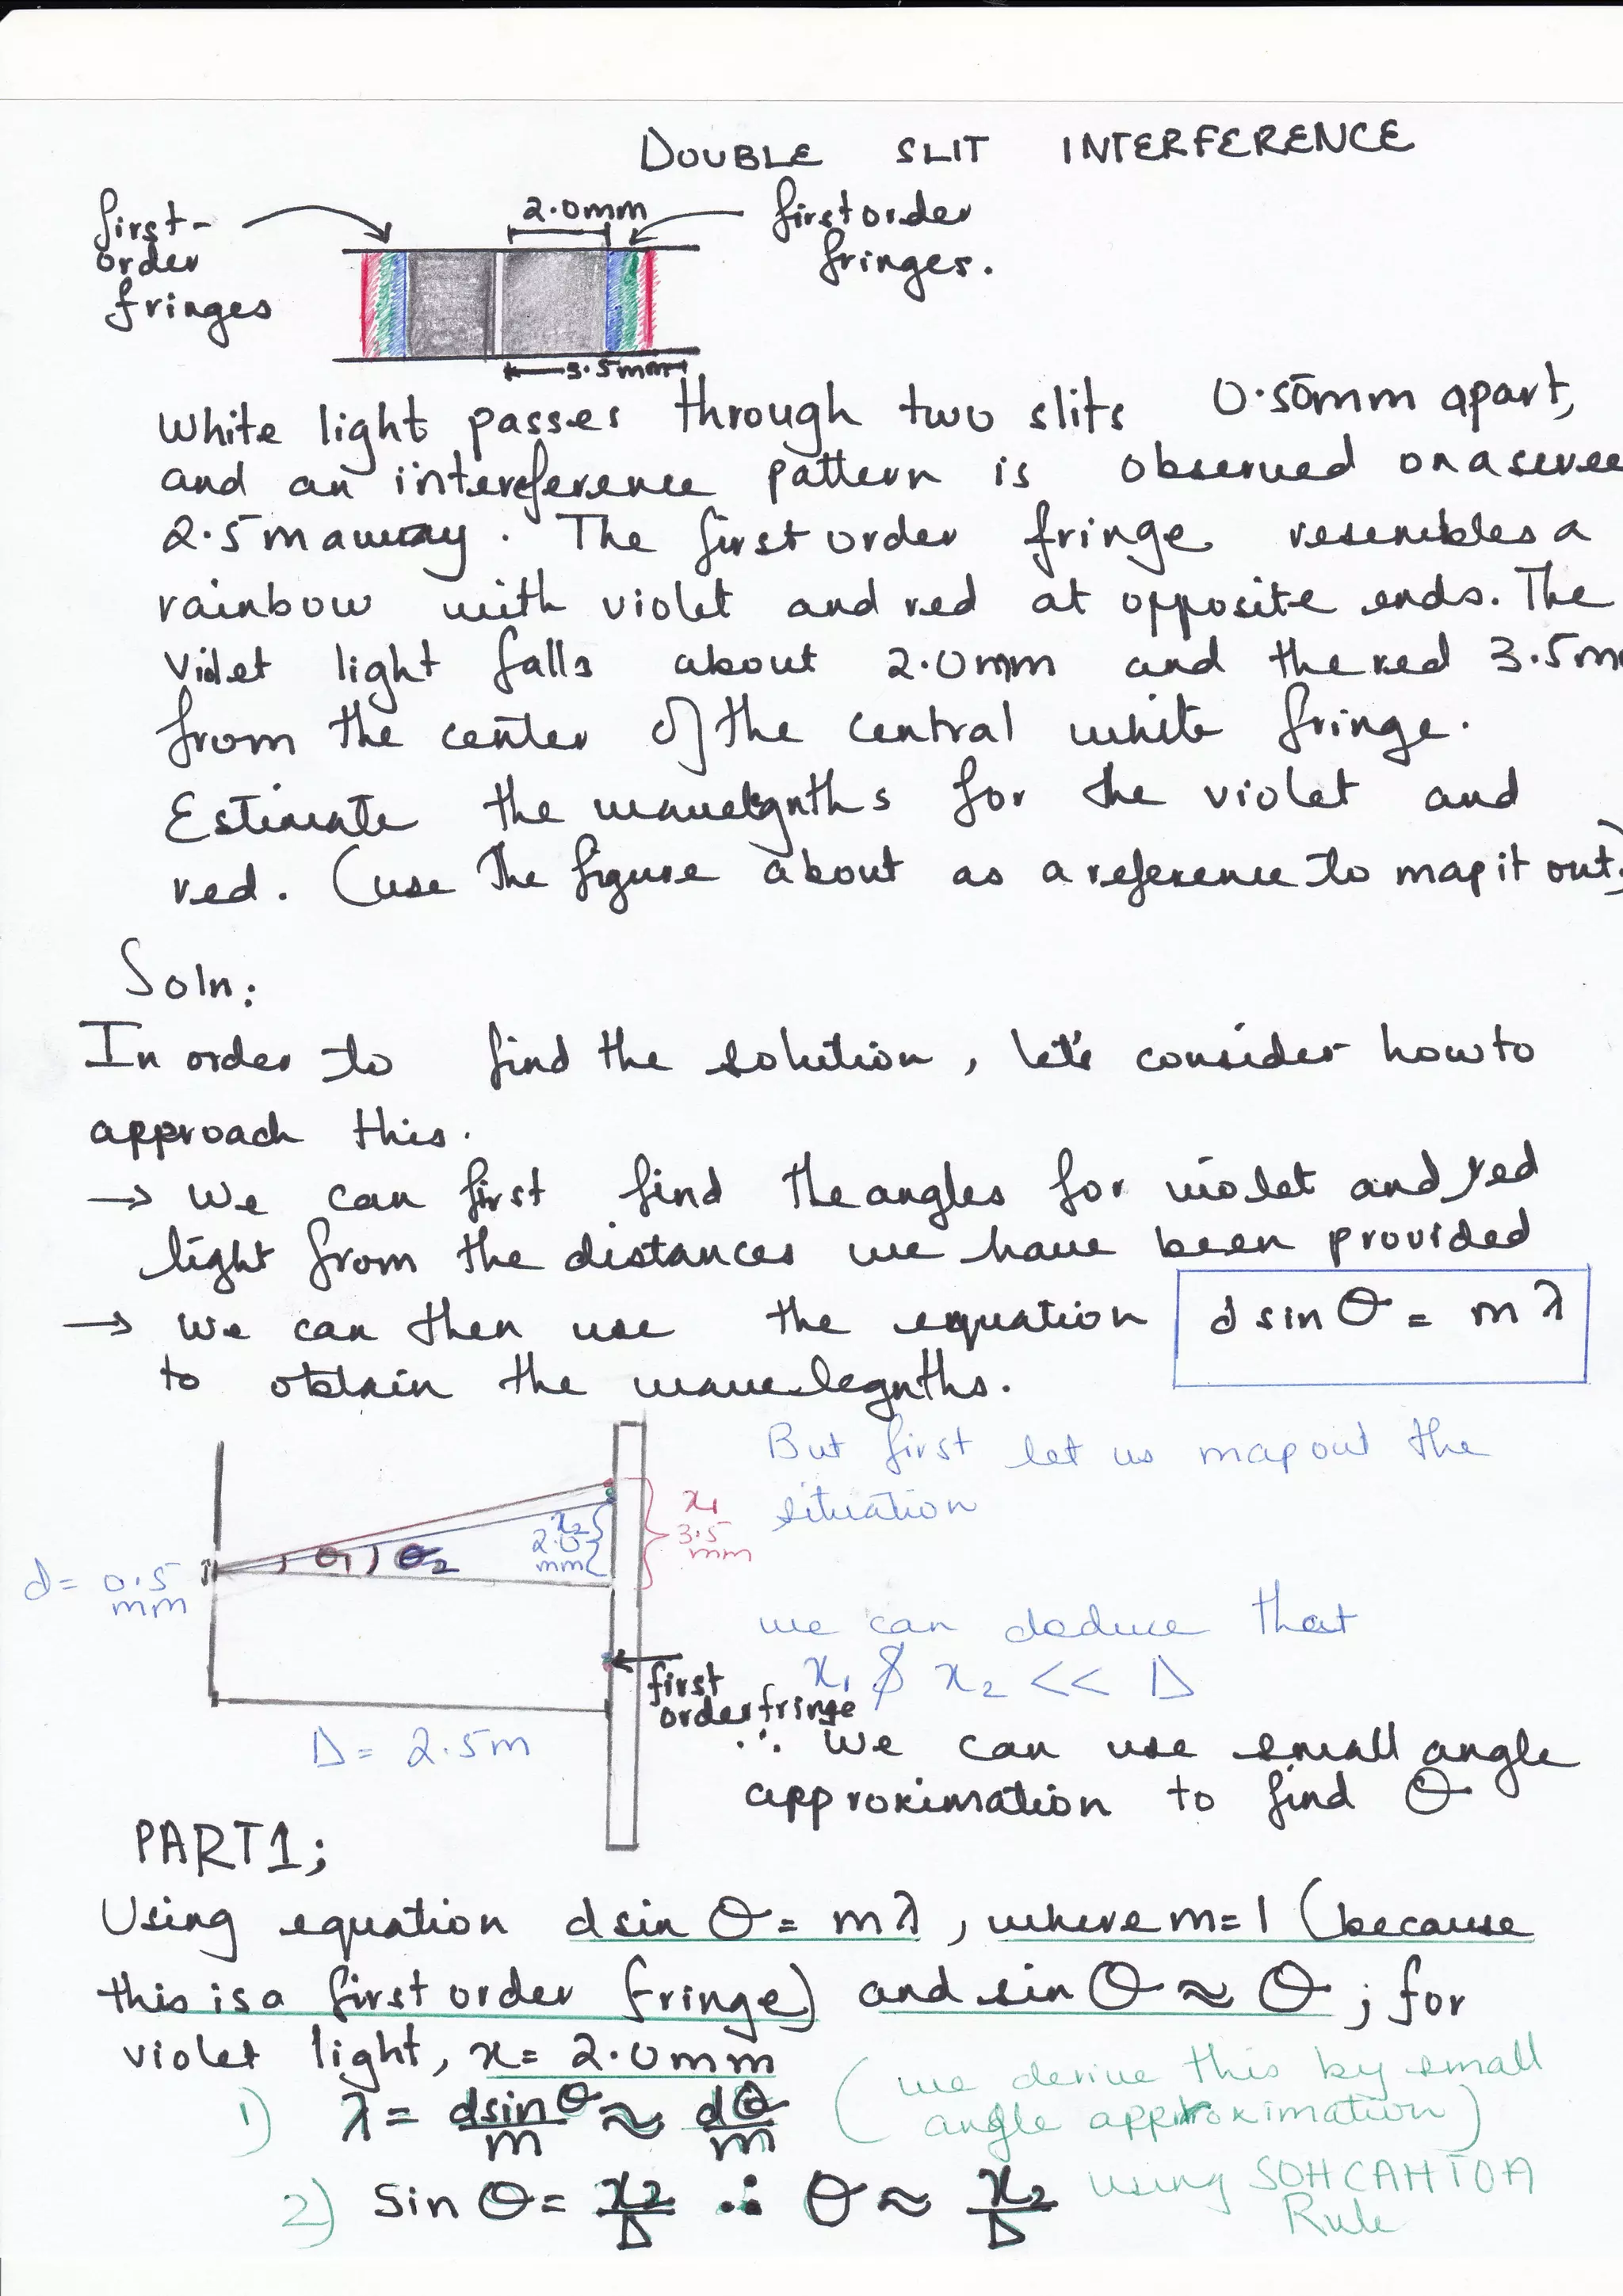 DOUBLE SLIT INTERFERENCE
first-
order
fringes
2.0mm
first order
fringes.
3.5mm
White light passes through two slits 0.50mm apart,
and an interference pattern is observed on a scree
2.5 m away. The first order fringe resembles a
rainbow with violet and red at opposite ends. The
violet light falls about 2.0mm and the red 3.5m
from the center of the central white fringe.
Estimate the wavelegnths for the violet and
red. (use the figure about as a reference to map it out)
Soln:
In order to find the solution, let's consider how to
approach this.
→ We can first find the angles for violet and red
light from the distances we have been provided
→ We can then use the equation d sin θ = m λ
to obtain the wavelegnths.
But first let us map out the
situation
x₁
3.5
mm
x₂
2.0
mm
θ₁ θ₂
d = 0.5
mm
we can deduce that
x₁ & x₂ << D
first
order fringe
D = 2.5m
∴ We can use small angle
approximation to find θ
PART1;
Using equation d sin θ = m λ, where m=1 (because
this is a first order fringe) and sin θ ≈ θ; for
violet light, x = 2.0mm
1) λ = dsinθ/m ≈ dθ/m (we derive this by small
angle approximation)
2) Sin θ = x₂/D ∴ θ ≈ x₂/D using SOHCAHTOA
Rule